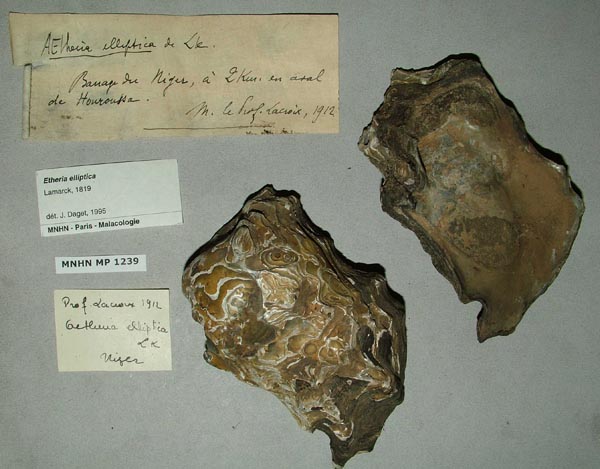 AEtheria elliptica de Lk.
Barrage du Niger, à 2 Km. en aval
de Kouroussa.
M. le Prof. Lacroix, 1912
Etheria elliptica
Lamarck, 1819
dét. J. Daget, 1995
MNHN - Paris - Malacologie
MNHN MP 1239
Prof. Lacroix 1912
Aetheria elliptica
Lk
Niger